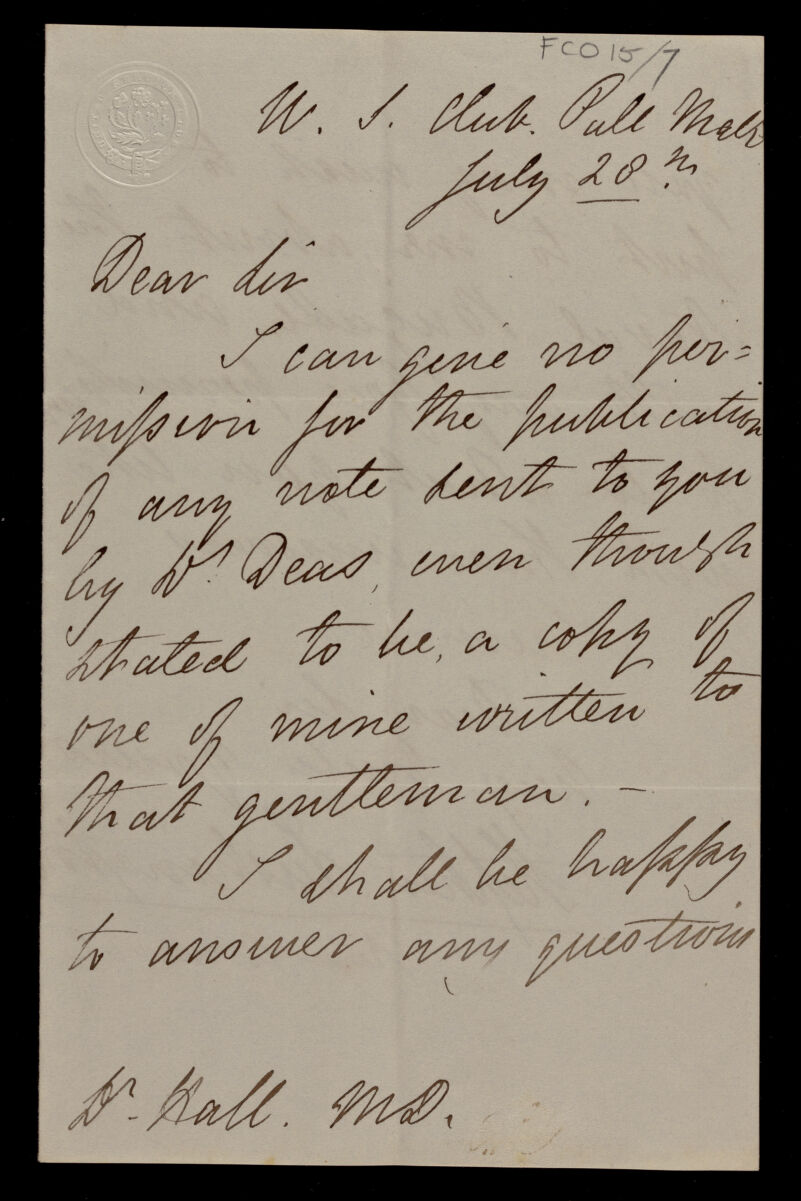 FCO 15/7
U. S. Club. Pall Mall
July 28th
Dear Sir
I can give no per=
mission for the publication
of any note sent to you
by Dr Deas, even though
stated to be, a copy of
one of mine written to
that gentleman. –
I shall be happy
to answer any questions
Dr. Hall. MD.